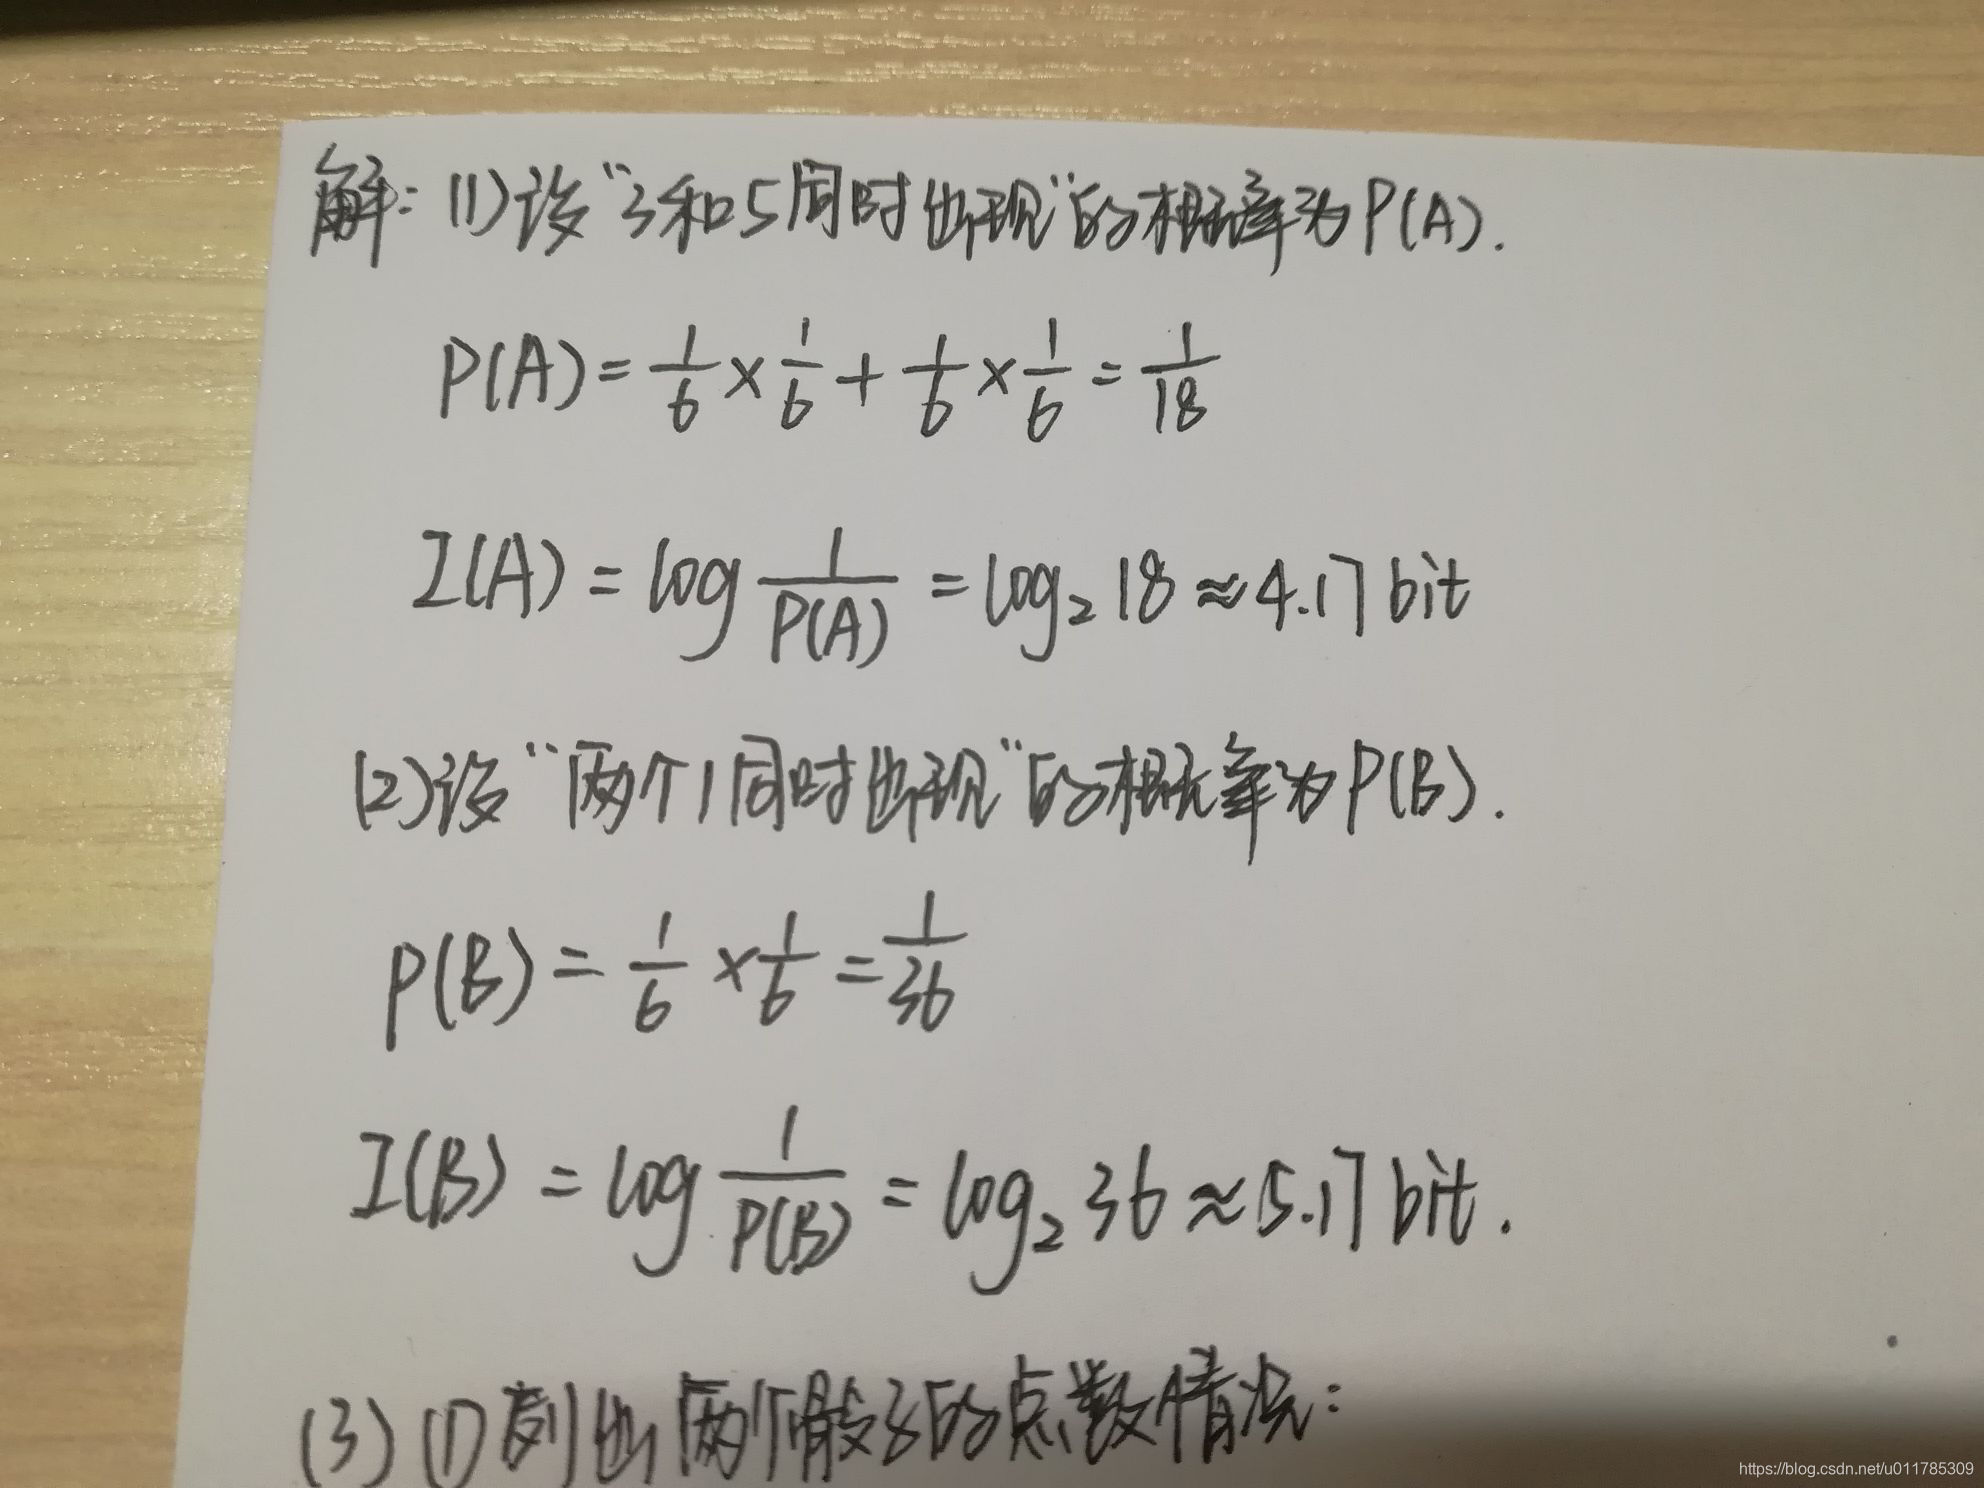 解: (1)设“3和5同时出现”的概率为P(A).
P(A)=1/6×1/6+1/6×1/6=1/18
I(A)=log 1/P(A)=log₂18≈4.17bit
(2)设“两个1同时出现”的概率为P(B).
P(B)=1/6×1/6=1/36
I(B)=log 1/P(B)=log₂36≈5.17bit.
(3)(1)列出两个骰子的点数情况:
https://blog.csdn.net/u011785309